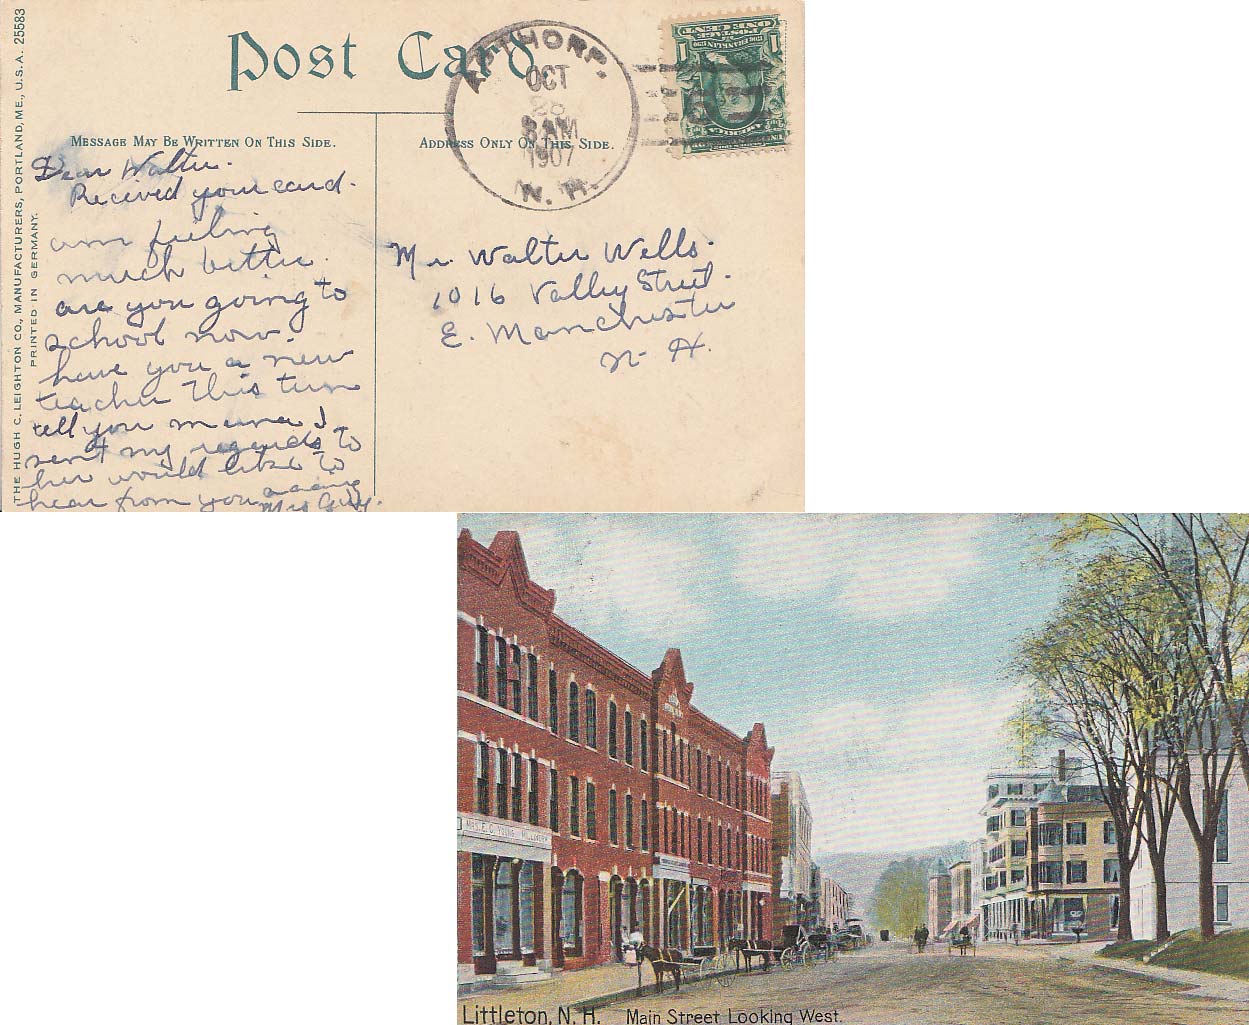 THE HUGH C. LEIGHTON CO., MANUFACTURERS, PORTLAND, ME., U.S.A. 25583
PRINTED IN GERMANY.
Post Card
APTHORP.
OCT
28
8 AM
1907
N. H.
MESSAGE MAY BE WRITTEN ON THIS SIDE.
ADDRESS ONLY ON THIS SIDE.
Dear Walter.
Recived your card.
am feeling
much better.
are you going to
school now.
have you a new
teacher this term
tell you mama I
sent my regards to
her would like to
hear from you
Mrs Guy.
Mr. Walter Wells.
1016 Valley Street.
E. Manchester
N. H.
ONE CENT
1 1
MRS. E. C. YOUNG MILLINERY
Littleton, N. H. Main Street Looking West.